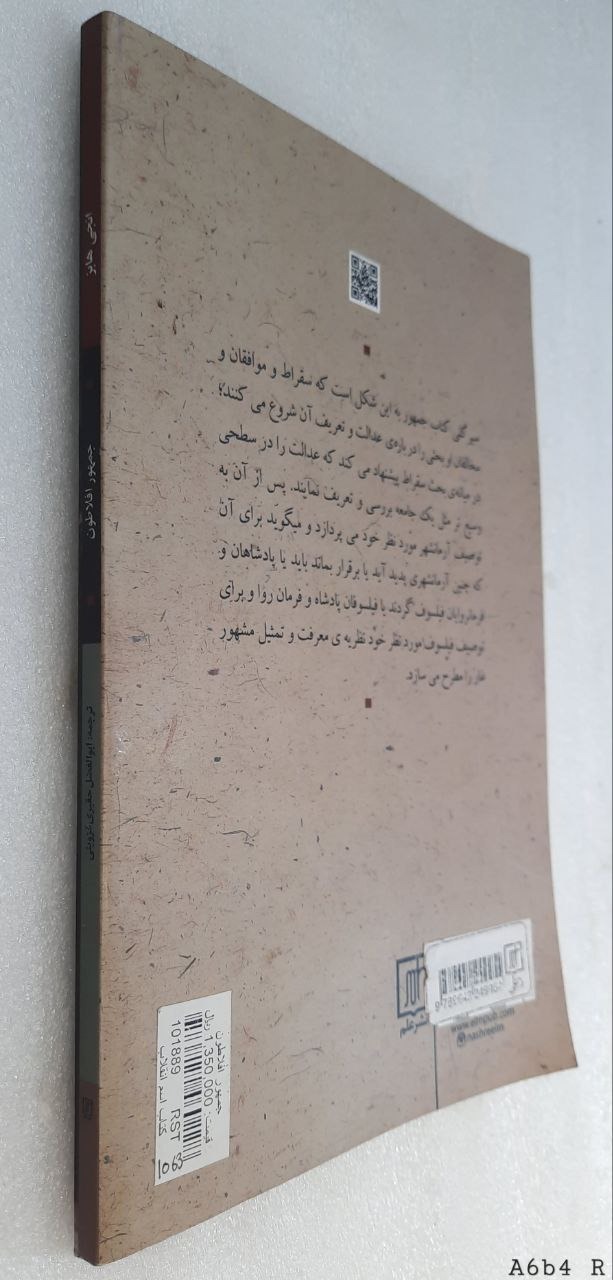 انجی هابز
جمهور افلاطون
ترجمه: ابوالفضل حقیری قزوینی
سیر کلی کتاب جمهور به این شکل است که سقراط و موافقان و
مخالفان او بحثی را درباره‌ی عدالت و تعریف آن شروع می کنند؛
در میانه‌ی بحث سقراط پیشنهاد می کند که عدالت را در سطحی
وسیع تر مثل یک جامعه بررسی و تعریف نمایند. پس از آن به
توصیف آرمانشهر مورد نظر خود می پردازد و میگوید برای آن
که چنین آرمانشهری پدید آید یا برقرار بماند باید یا پادشاهان و
فرمانروایان فیلسوف گردند یا فیلسوفان پادشاه و فرمان روا و برای
توصیف فیلسوف مورد نظر خود نظریه ی معرفت و تمثیل مشهور
غار را مطرح می سازد.
نشر علم
www.elmpub.com
@nashreelm
جمهور افلاطون
قیمت: 1,350,000 ریال
101889 RST
کتاب اسم انقلاب
A6b4 R